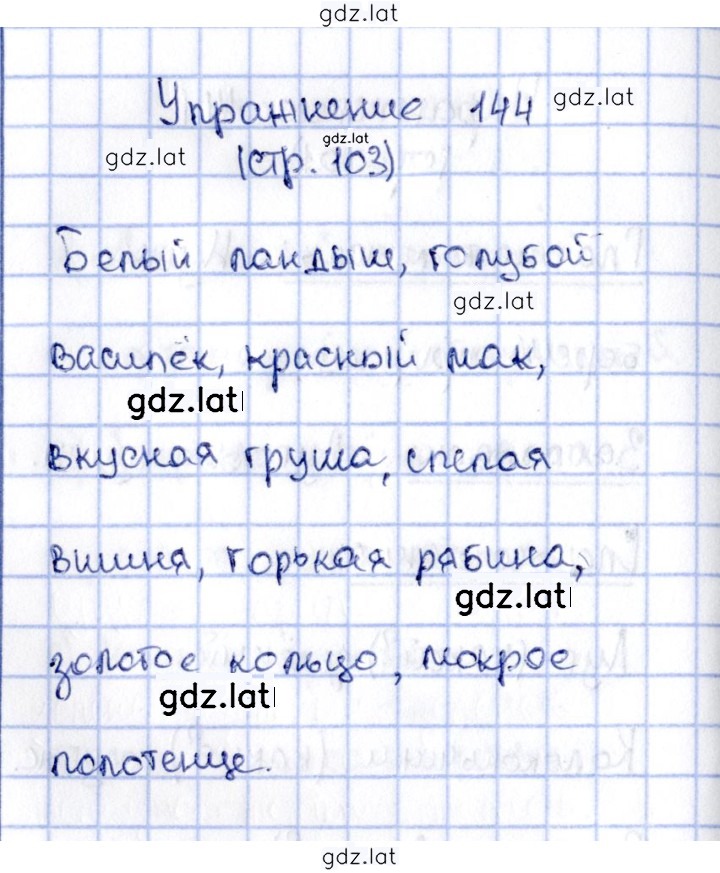 gdz.lat
Упражнение 144 gdz.lat
gdz.lat
gdz.lat (стр. 103)
Белый ландыш, голубой
gdz.lat
василёк, красный мак,
gdz.lat
вкусная груша, спелая
вишня, горькая рябина,
gdz.lat
золотое кольцо, мокрое
gdz.lat
полотенце.
gdz.lat